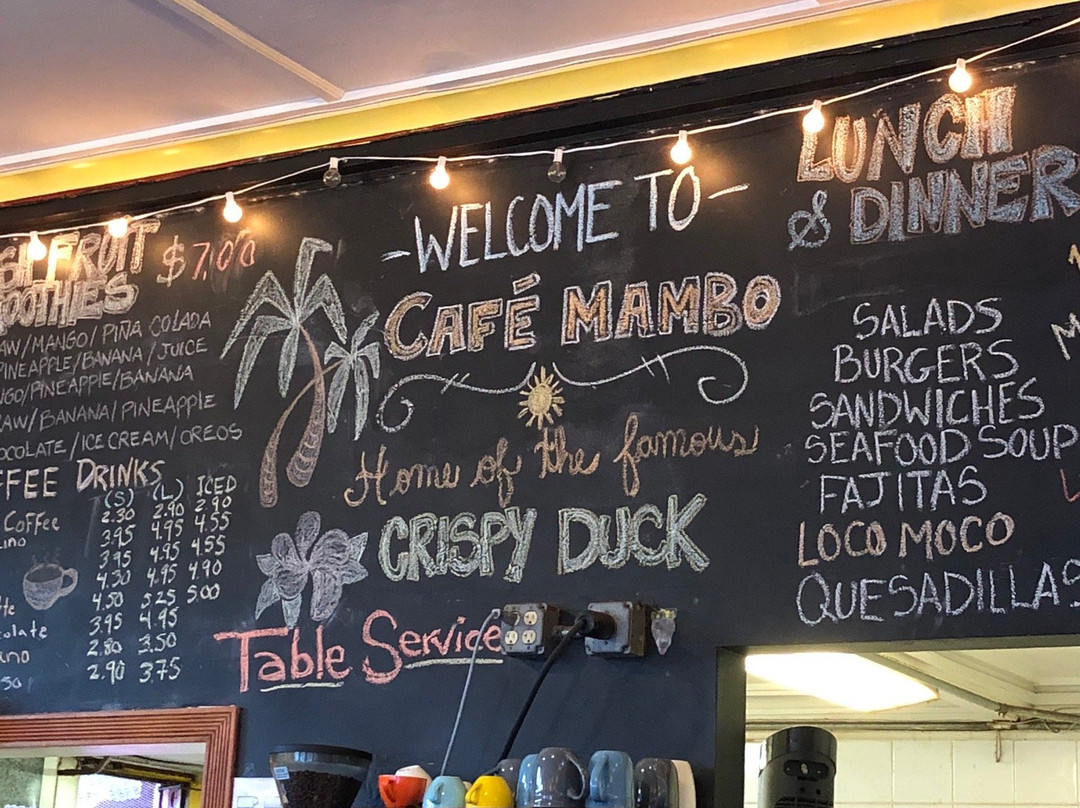 FRUIT $7.00
SMOOTHIES
/MANGO/PIÑA COLADA
PINEAPPLE/BANANA/JUICE
/PINEAPPLE/BANANA
/BANANA/PINEAPPLE
/ICE CREAM/OREOS
DRINKS
(S) (L) ICED
Coffee 2.30 2.90 2.90
3.95 4.95 4.55
3.95 4.95 4.55
4.30 4.95 4.90
4.50 5.25 5.00
3.95 4.95
2.80 3.50
2.90 3.75
-WELCOME TO-
CAFÉ MAMBO
Home of the famous
CRISPY DUCK
Table Service
LUNCH
& DINNER
SALADS
BURGERS
SANDWICHES
SEAFOOD SOUP
FAJITAS
LOCO MOCO
QUESADILLAS